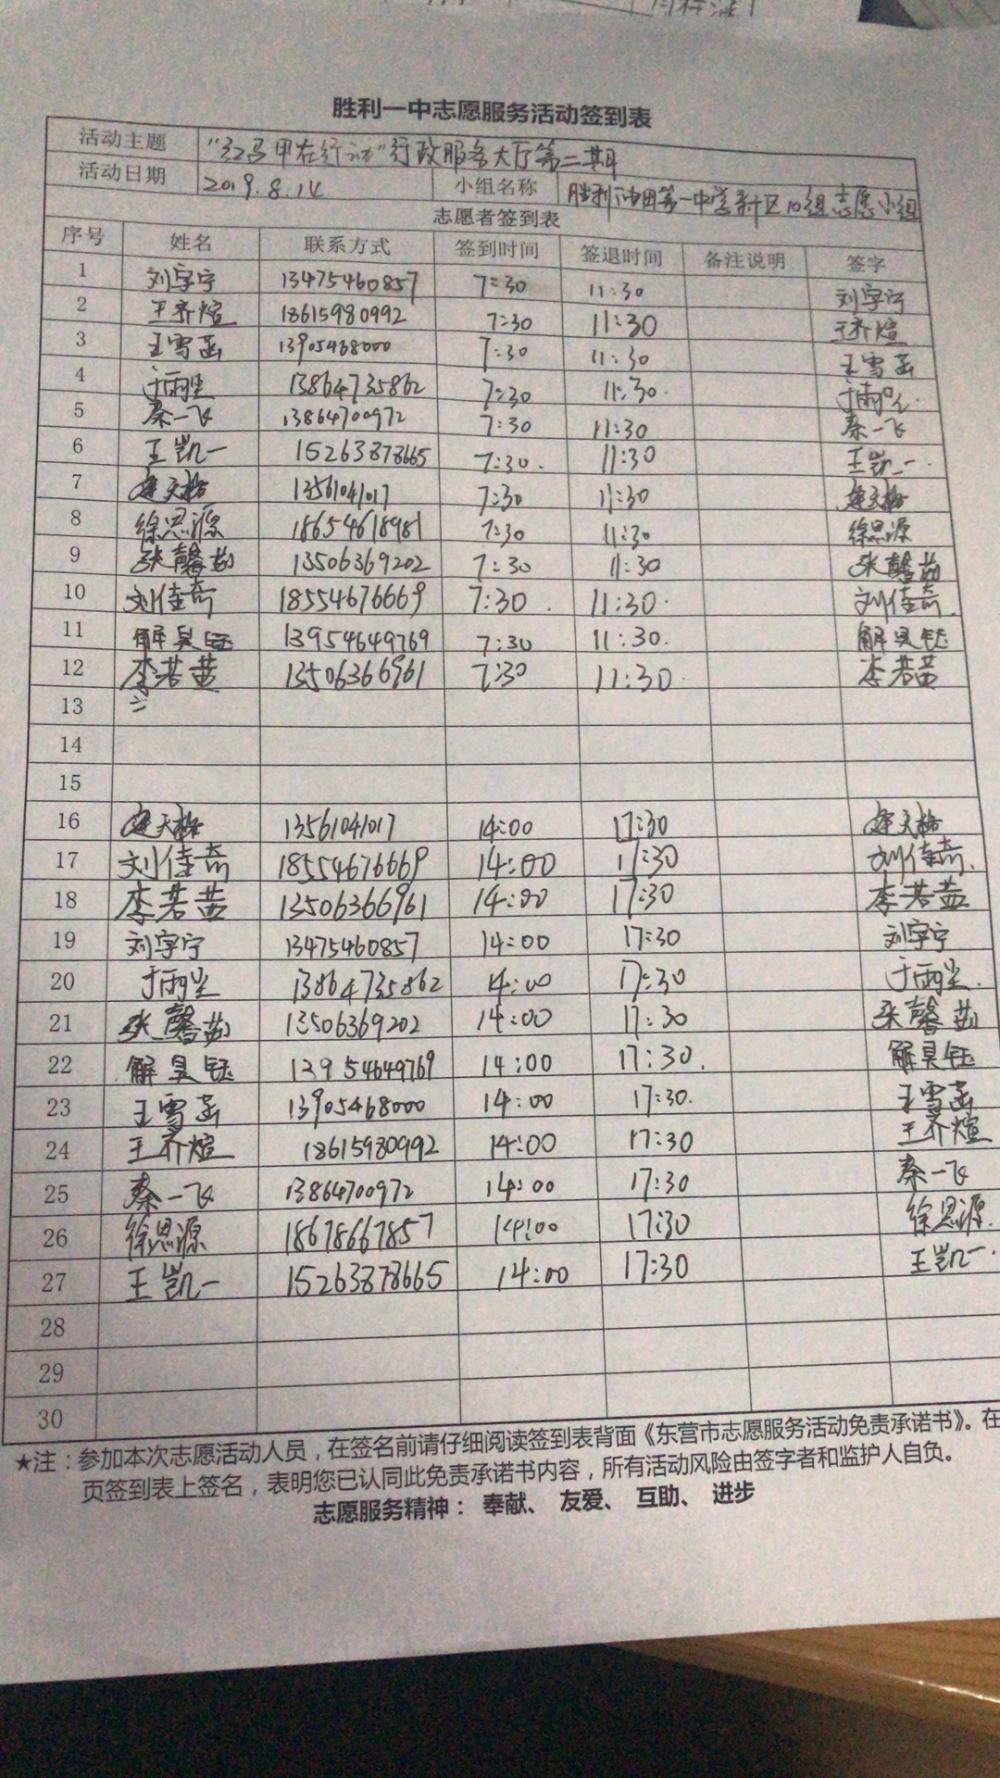 胜利一中志愿服务活动签到表
活动主题 "红马甲在行动"行政服务大厅第二期
活动日期 2019.8.14 小组名称 胜利油田第一中学新区10组志愿小组
志愿者签到表
序号 姓名 联系方式 签到时间 签退时间 备注说明 签字
1 刘字宁 13475460857 7:30 11:30 刘字宁
2 王乔煊 18615980992 7:30 11:30 王乔煊
3 王雪菡 13905468000 7:30 11:30 王雪菡
4 于雨尘 13864735862 7:30 11:30. 于雨尘.
5 秦一飞 13864700972 7:30 11:30 秦一飞
6 王凯一 15263878665 7:30. 11:30 王凯一.
7 13561041017 7:30 11:30
8 徐思源 18654618981 7:30 11:30 徐思源
9 张馨茹 13506369202 7:30 11:30 张馨茹
10 刘佳奇 18554676669 7:30. 11:30. 刘佳奇.
11 解昊钰 13954649769 7:30 11:30. 解昊钰
12 李若茜 13506366961 7:30 11:30. 李若茜
13
14
15
16 13561041017 14:00 17:30
17 刘佳奇 18554676669 14:00 17:30 刘佳奇.
18 李若茜 13506366961 14:00 17:30 李若茜
19 刘字宁 13475460857 14:00 17:30 刘字宁
20 于雨尘 13864735862 14:00 17:30 于雨尘.
21 张馨茹 13506369202 14:00 17:30 张馨茹
22 解昊钰 13954649769 14:00 17:30. 解昊钰
23 王雪菡 13905468000 14:00 17:30. 王雪菡
24 王乔煊 18615980992 14:00 17:30 王乔煊
25 秦一飞 13864700972 14:00 17:30 秦一飞
26 徐思源 18678667857 14:00 17:30 徐思源.
27 王凯一 15263878665 14:00 17:30 王凯一.
28
29
30
★注：参加本次志愿活动人员，在签名前请仔细阅读签到表背面《东营市志愿服务活动免责承诺书》。在
页签到表上签名，表明您已认同此免责承诺书内容，所有活动风险由签字者和监护人自负。
志愿服务精神： 奉献、 友爱、 互助、 进步